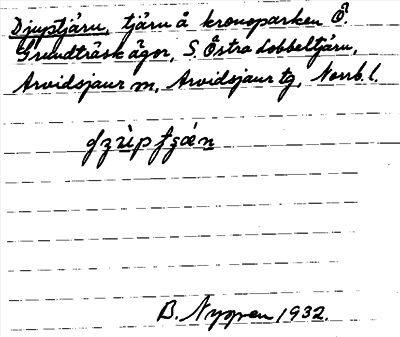 Djuptjärn, tjärn å kronoparken Ö.
Grundträsk ägor, S. Östra Lobbeltjärn,
Arvidsjaur sn, Arvidsjaur tg, Norrb. l.
B. Nyman 1932.